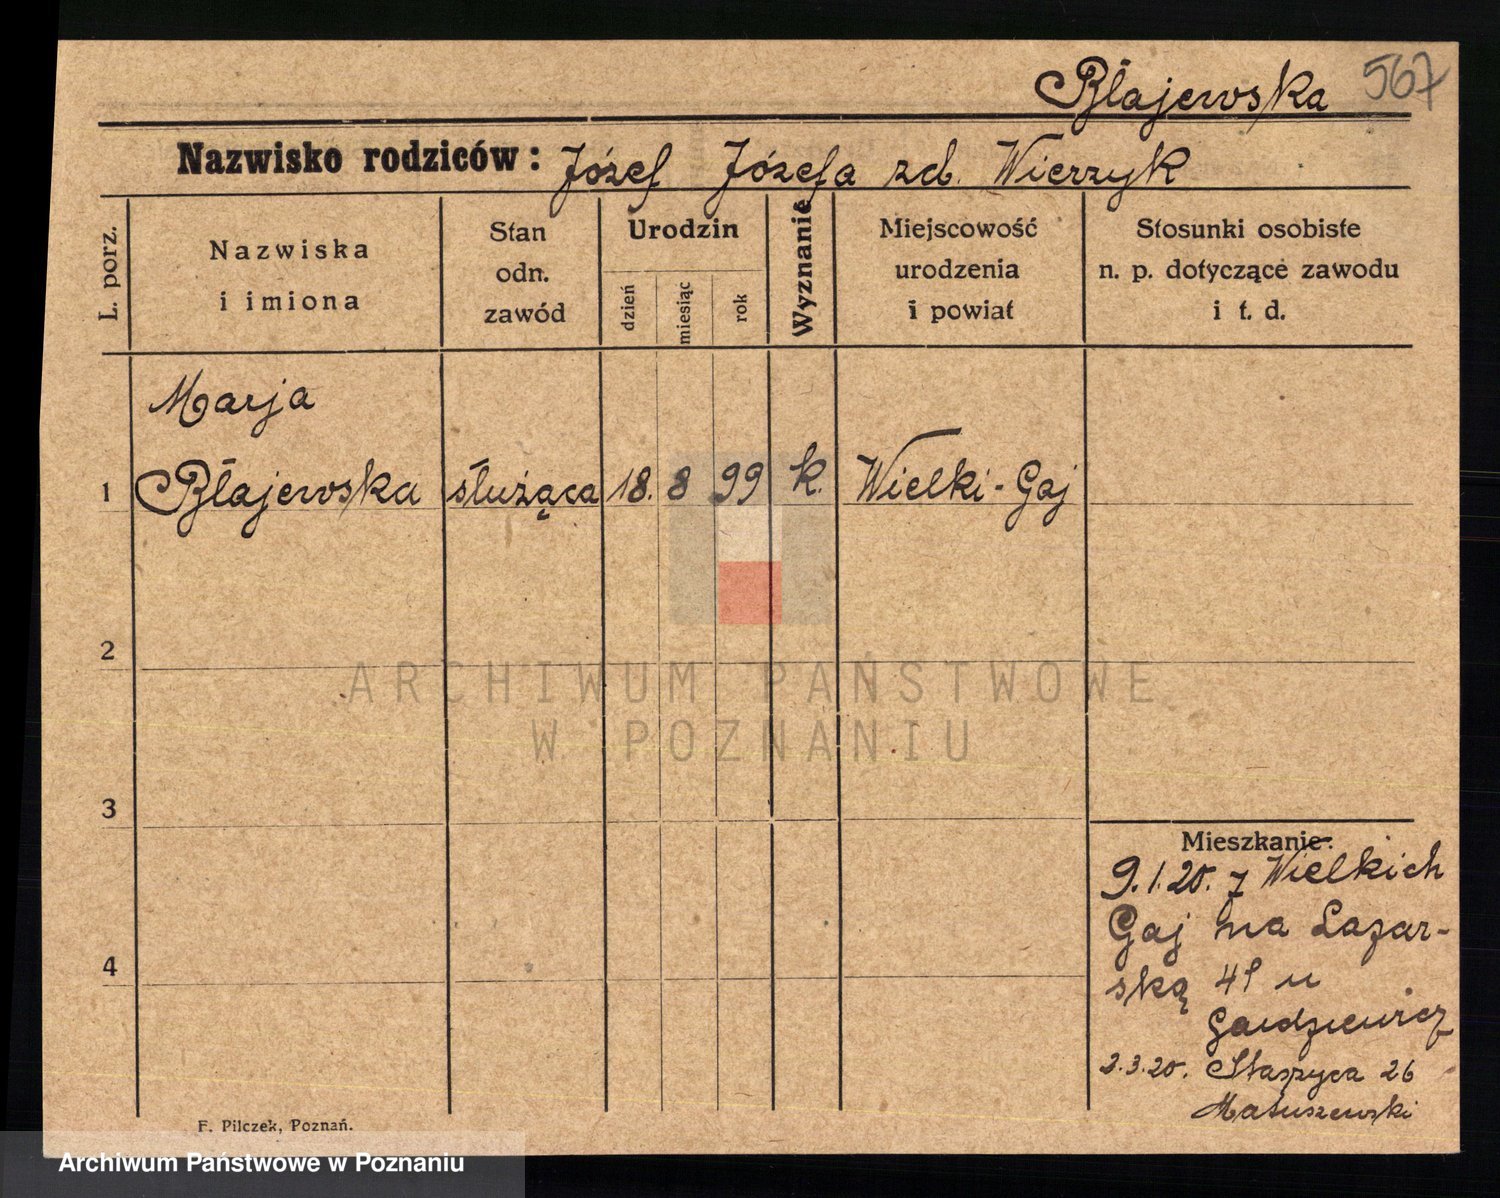 Błajewska 567
Nazwisko rodziców: Józef Józefa zd. Wierzyk
L. porz.
Nazwiska
i imiona
Stan
odn.
zawód
Urodzin
dzień
miesiąc
rok
Wyznanie
Miejscowość
urodzenia
i powiat
Stosunki osobiste
n. p. dotyczące zawodu
i t. d.
Marja
1 Błajewska służąca 18. 8 99 k. Wielki-Gaj
2
3
4
Mieszkanie:
9.1.20. z Wielkich
Gaj na Łazar-
ską 4 u
2.3.20. Staszyca 26
Matuszewski
F. Pilczek, Poznań.
ARCHIWUM PAŃSTWOWE
W POZNANIU
Archiwum Państwowe w Poznaniu